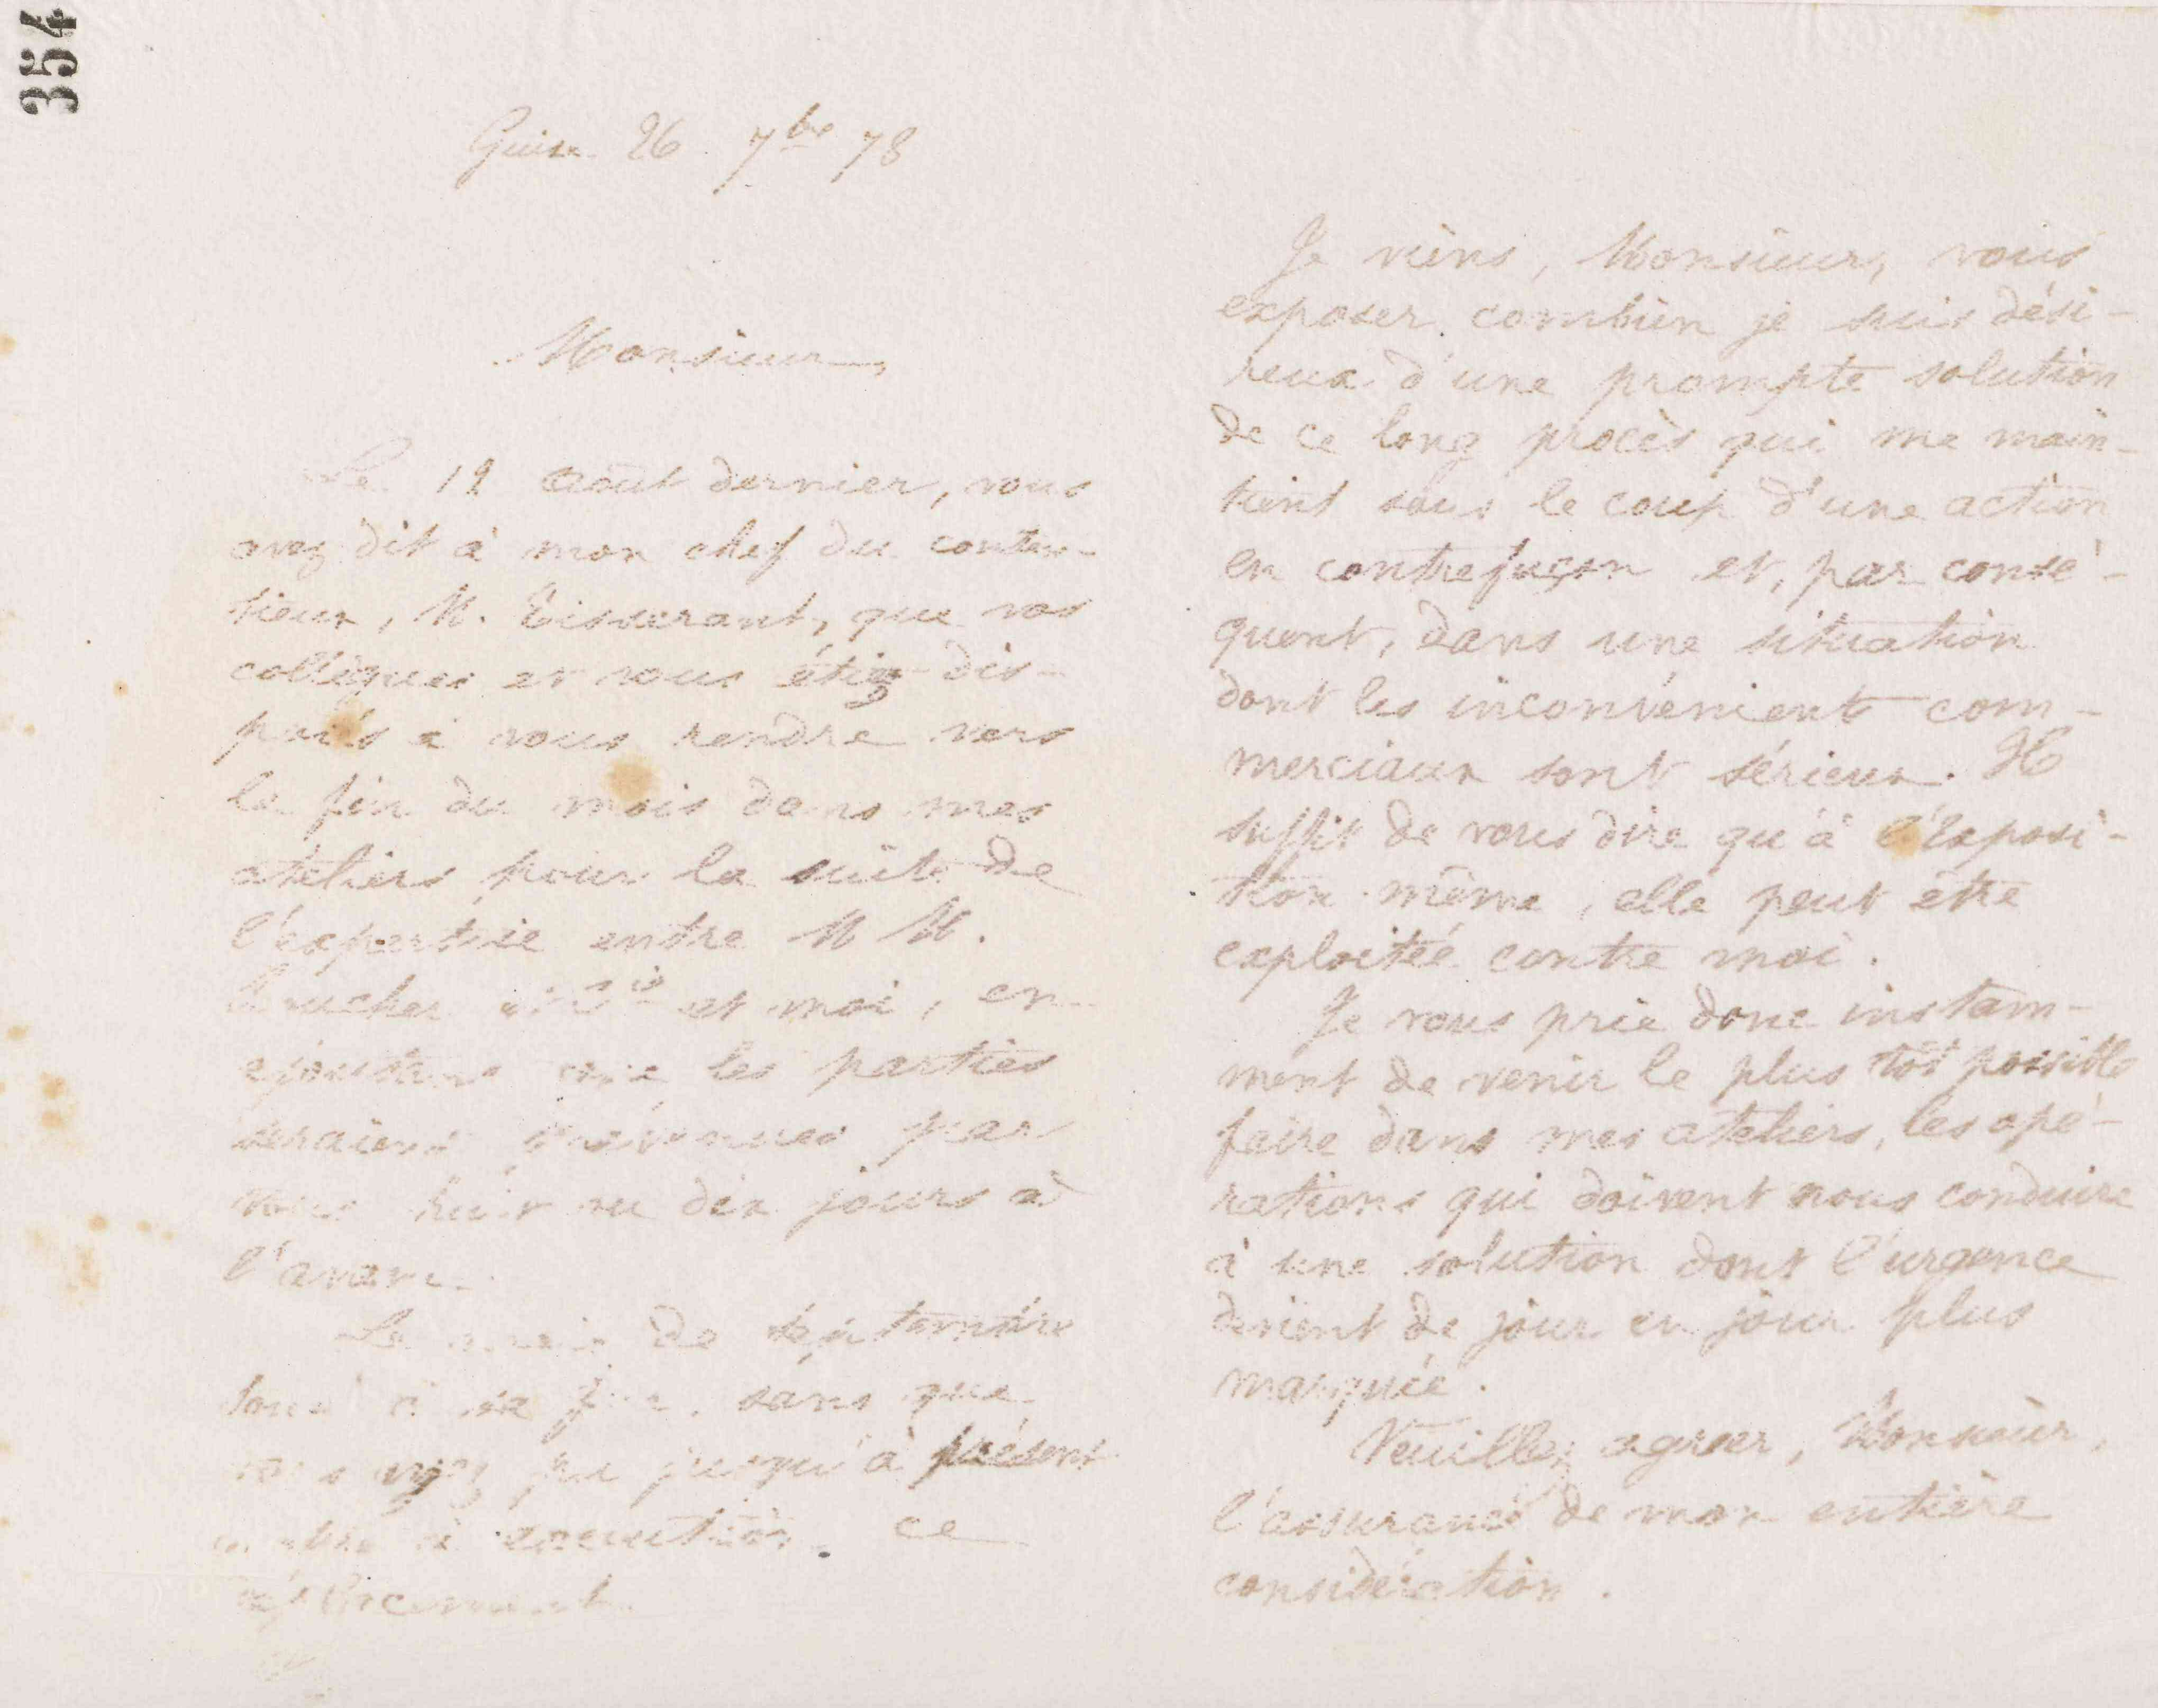 354
Guise 26 7bre 78
Monsieur,
Le 12 août dernier, vous
avez dit à mon chef du conten-
tieux, M. Tisserant, que vos
collègues et vous étiez dis-
posés à vous rendre vers
la fin du mois dans mes
ateliers pour la suite de
l'expertise entre M M.
Boucher et Cie et moi, en
ajoutant que les parties
seraient prévenues par
vous huit ou dix jours à
l'avance.
Le mois de septembre
touche à sa fin, sans que
vous ayez pu jusqu'à présent
mettre à exécution ce
déplacement.
Je viens, Monsieur, vous
exposer combien je suis dési-
reux d'une prompte solution
de ce long procès qui me main-
tient sous le coup d'une action
en contrefaçon et, par consé-
quent, dans une situation
dont les inconvénients com-
merciaux sont sérieux. Il
suffit de vous dire qu'à l'Exposi-
tion même, elle peut être
exploitée contre moi.
Je vous prie donc instam-
ment de venir le plus tôt possible
faire dans mes ateliers, les opé-
rations qui doivent nous conduire
à une solution dont l'urgence
devient de jour en jour plus
marquée.
Veuillez agréer, Monsieur,
l'assurance de mon entière
considération.